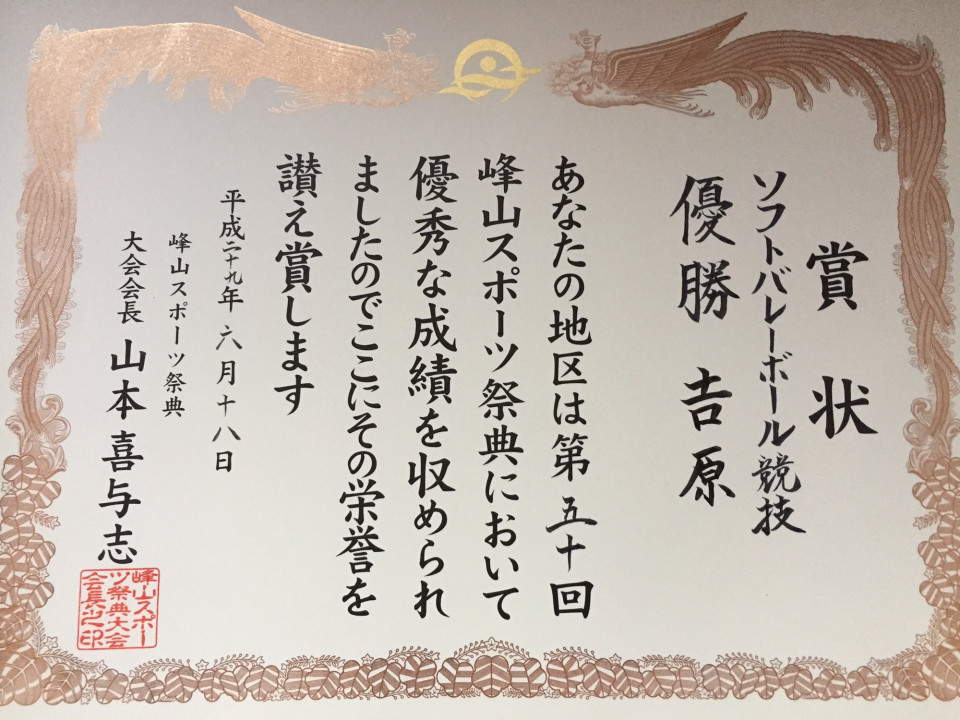 賞状
ソフトバレーボール競技
優勝 吉原
あなたの地区は第五十回
峰山スポーツ祭典において
優秀な成績を収められ
ましたのでここにその栄誉を
讃え賞します
平成二十九年六月十八日
峰山スポーツ祭典
大会会長 山本喜与志
峰山スポー
ツ祭典大会
会長之印